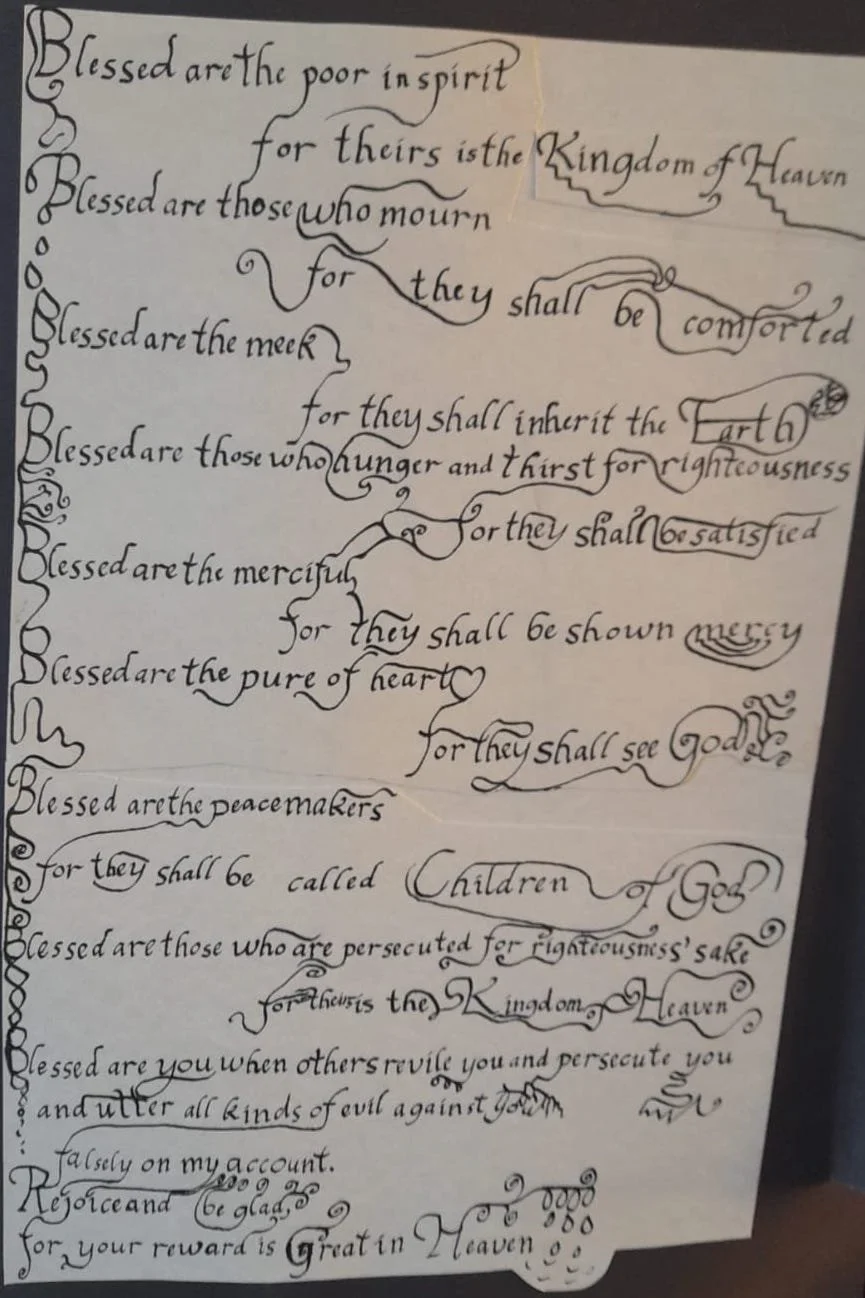 Blessed are the poor in spirit
for theirs is the Kingdom of Heaven
Blessed are those who mourn
for they shall be comforted
Blessed are the meek
for they shall inherit the Earth
Blessed are those who hunger and thirst for righteousness
for they shall be satisfied
Blessed are the merciful
for they shall be shown mercy
Blessed are the pure of heart
for they shall see God
Blessed are the peacemakers
for they shall be called Children of God
Blessed are those who are persecuted for righteousness' sake
for theirs is the Kingdom of Heaven
Blessed are you when others revile you and persecute you
and utter all kinds of evil against you
falsely on my account.
Rejoice and be glad,
for your reward is Great in Heaven